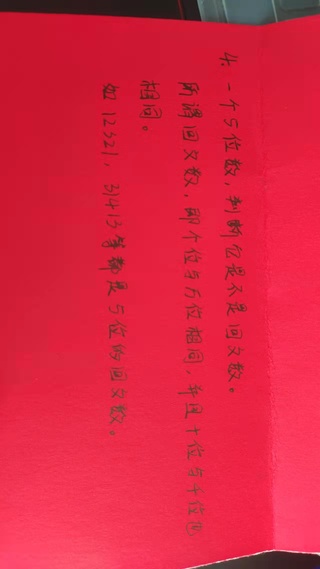 4. 一个5位数，判断它是不是回文数。
所谓回文数，即个位与万位相同，并且十位与千位
相同。
如 12321，31413 等都是5位的回文数。